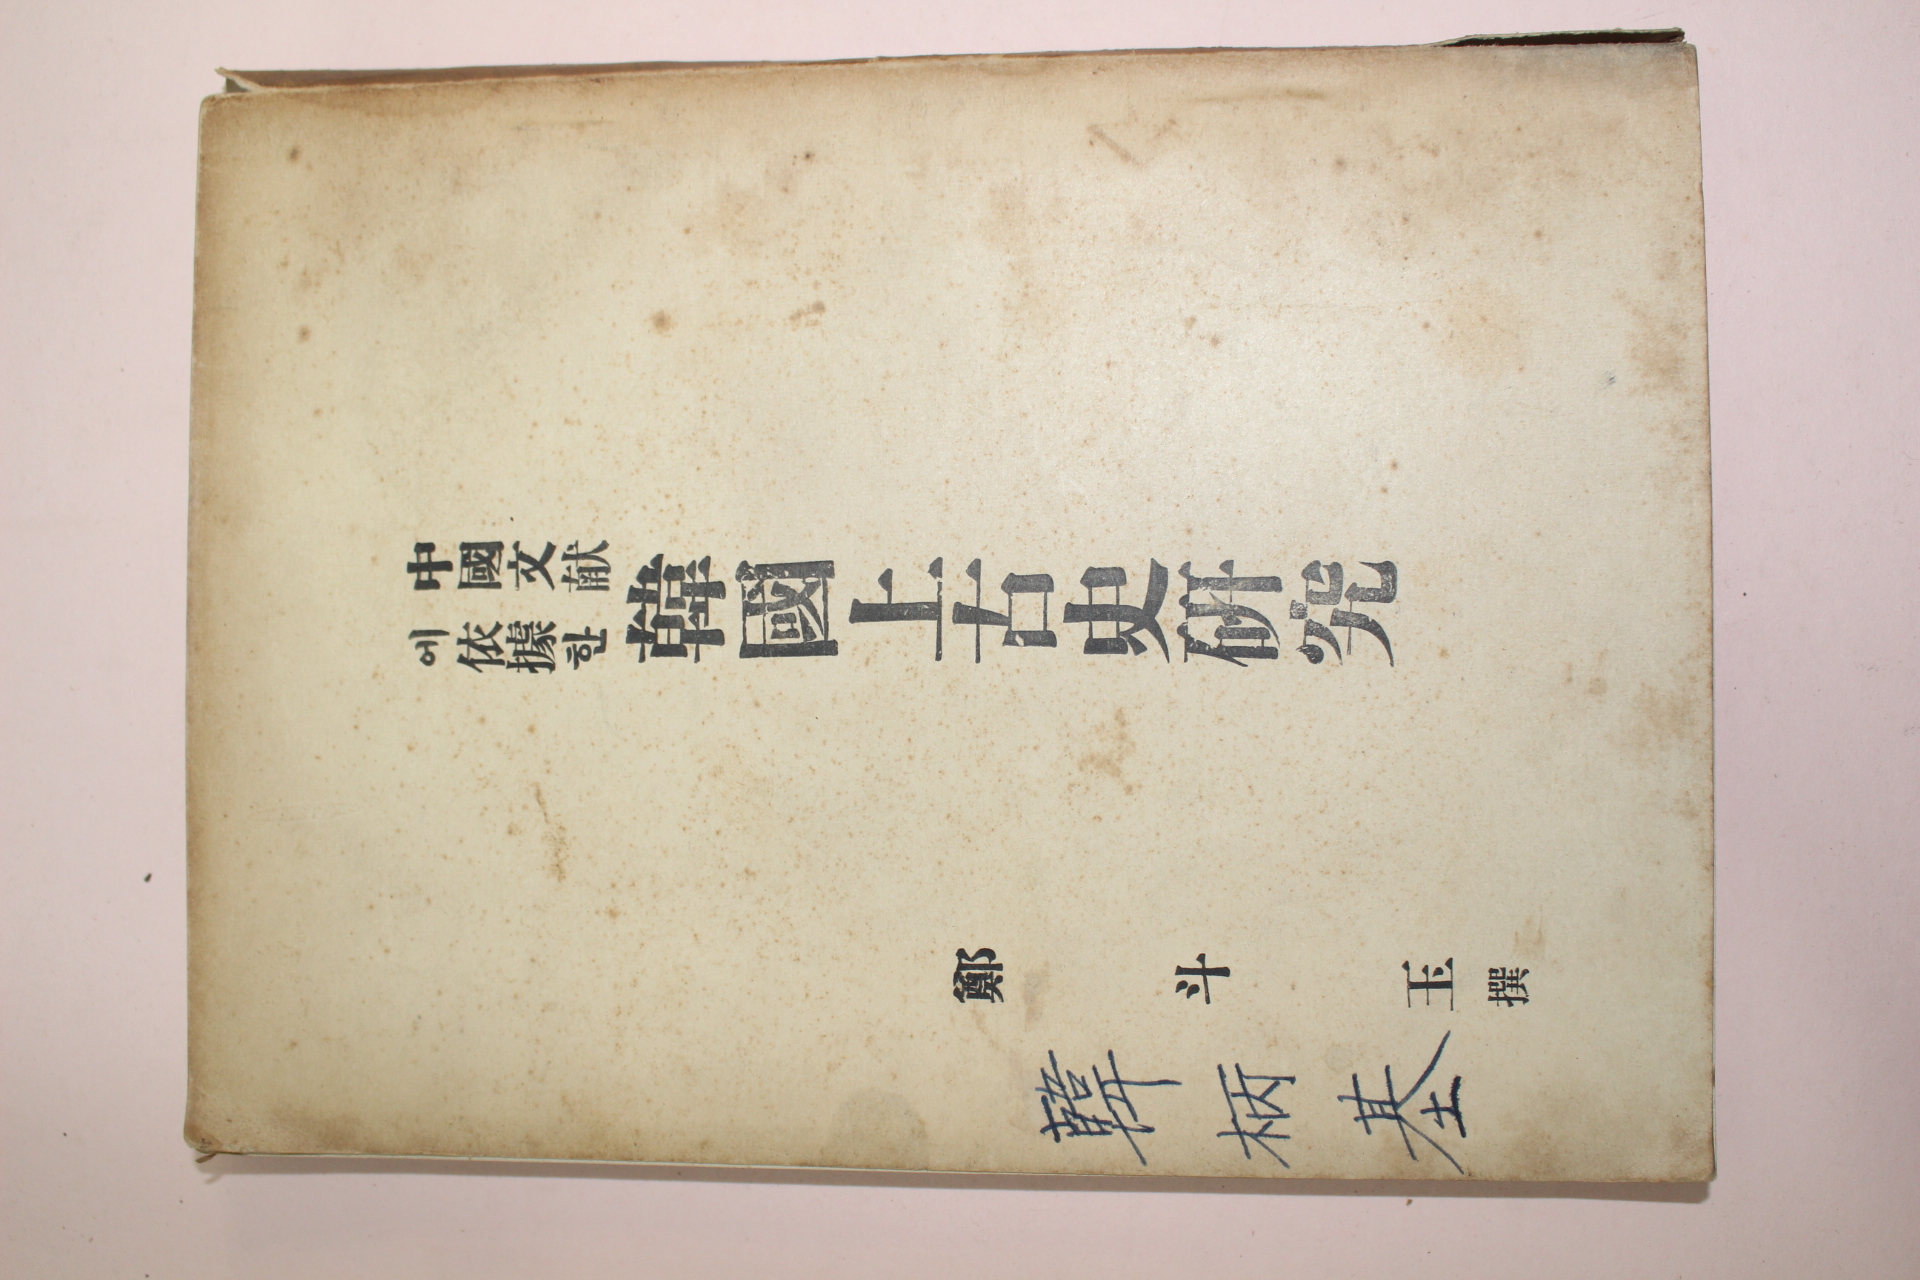 中國文献
에依據한
韓國上古史硏究
鄭斗玉 撰
韓柄基